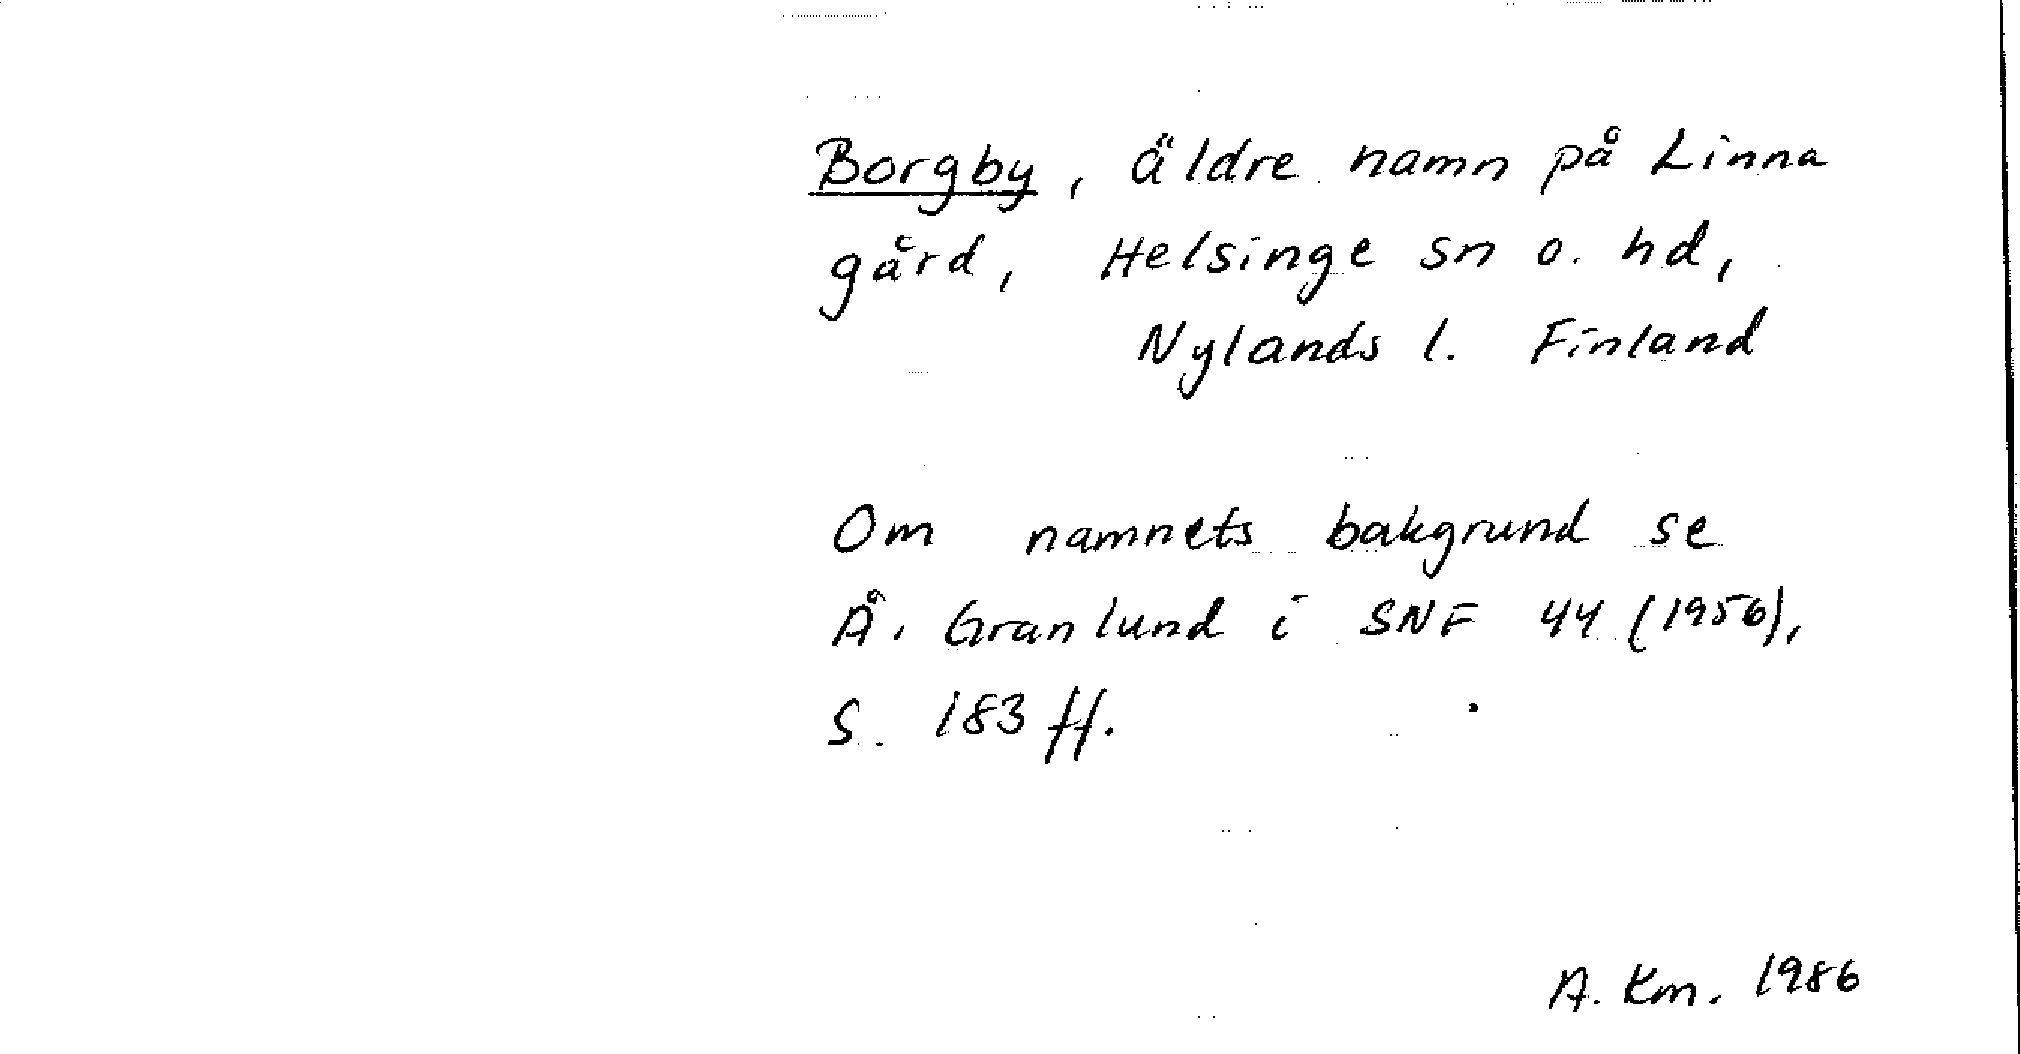 Borgby, äldre namn på Linna
gård, Helsinge sn o. hd,
Nylands l. Finland
Om namnets bakgrund se
Å. Granlund i SNF 44 (1956),
S. 183 ff.
A. Km. 1986